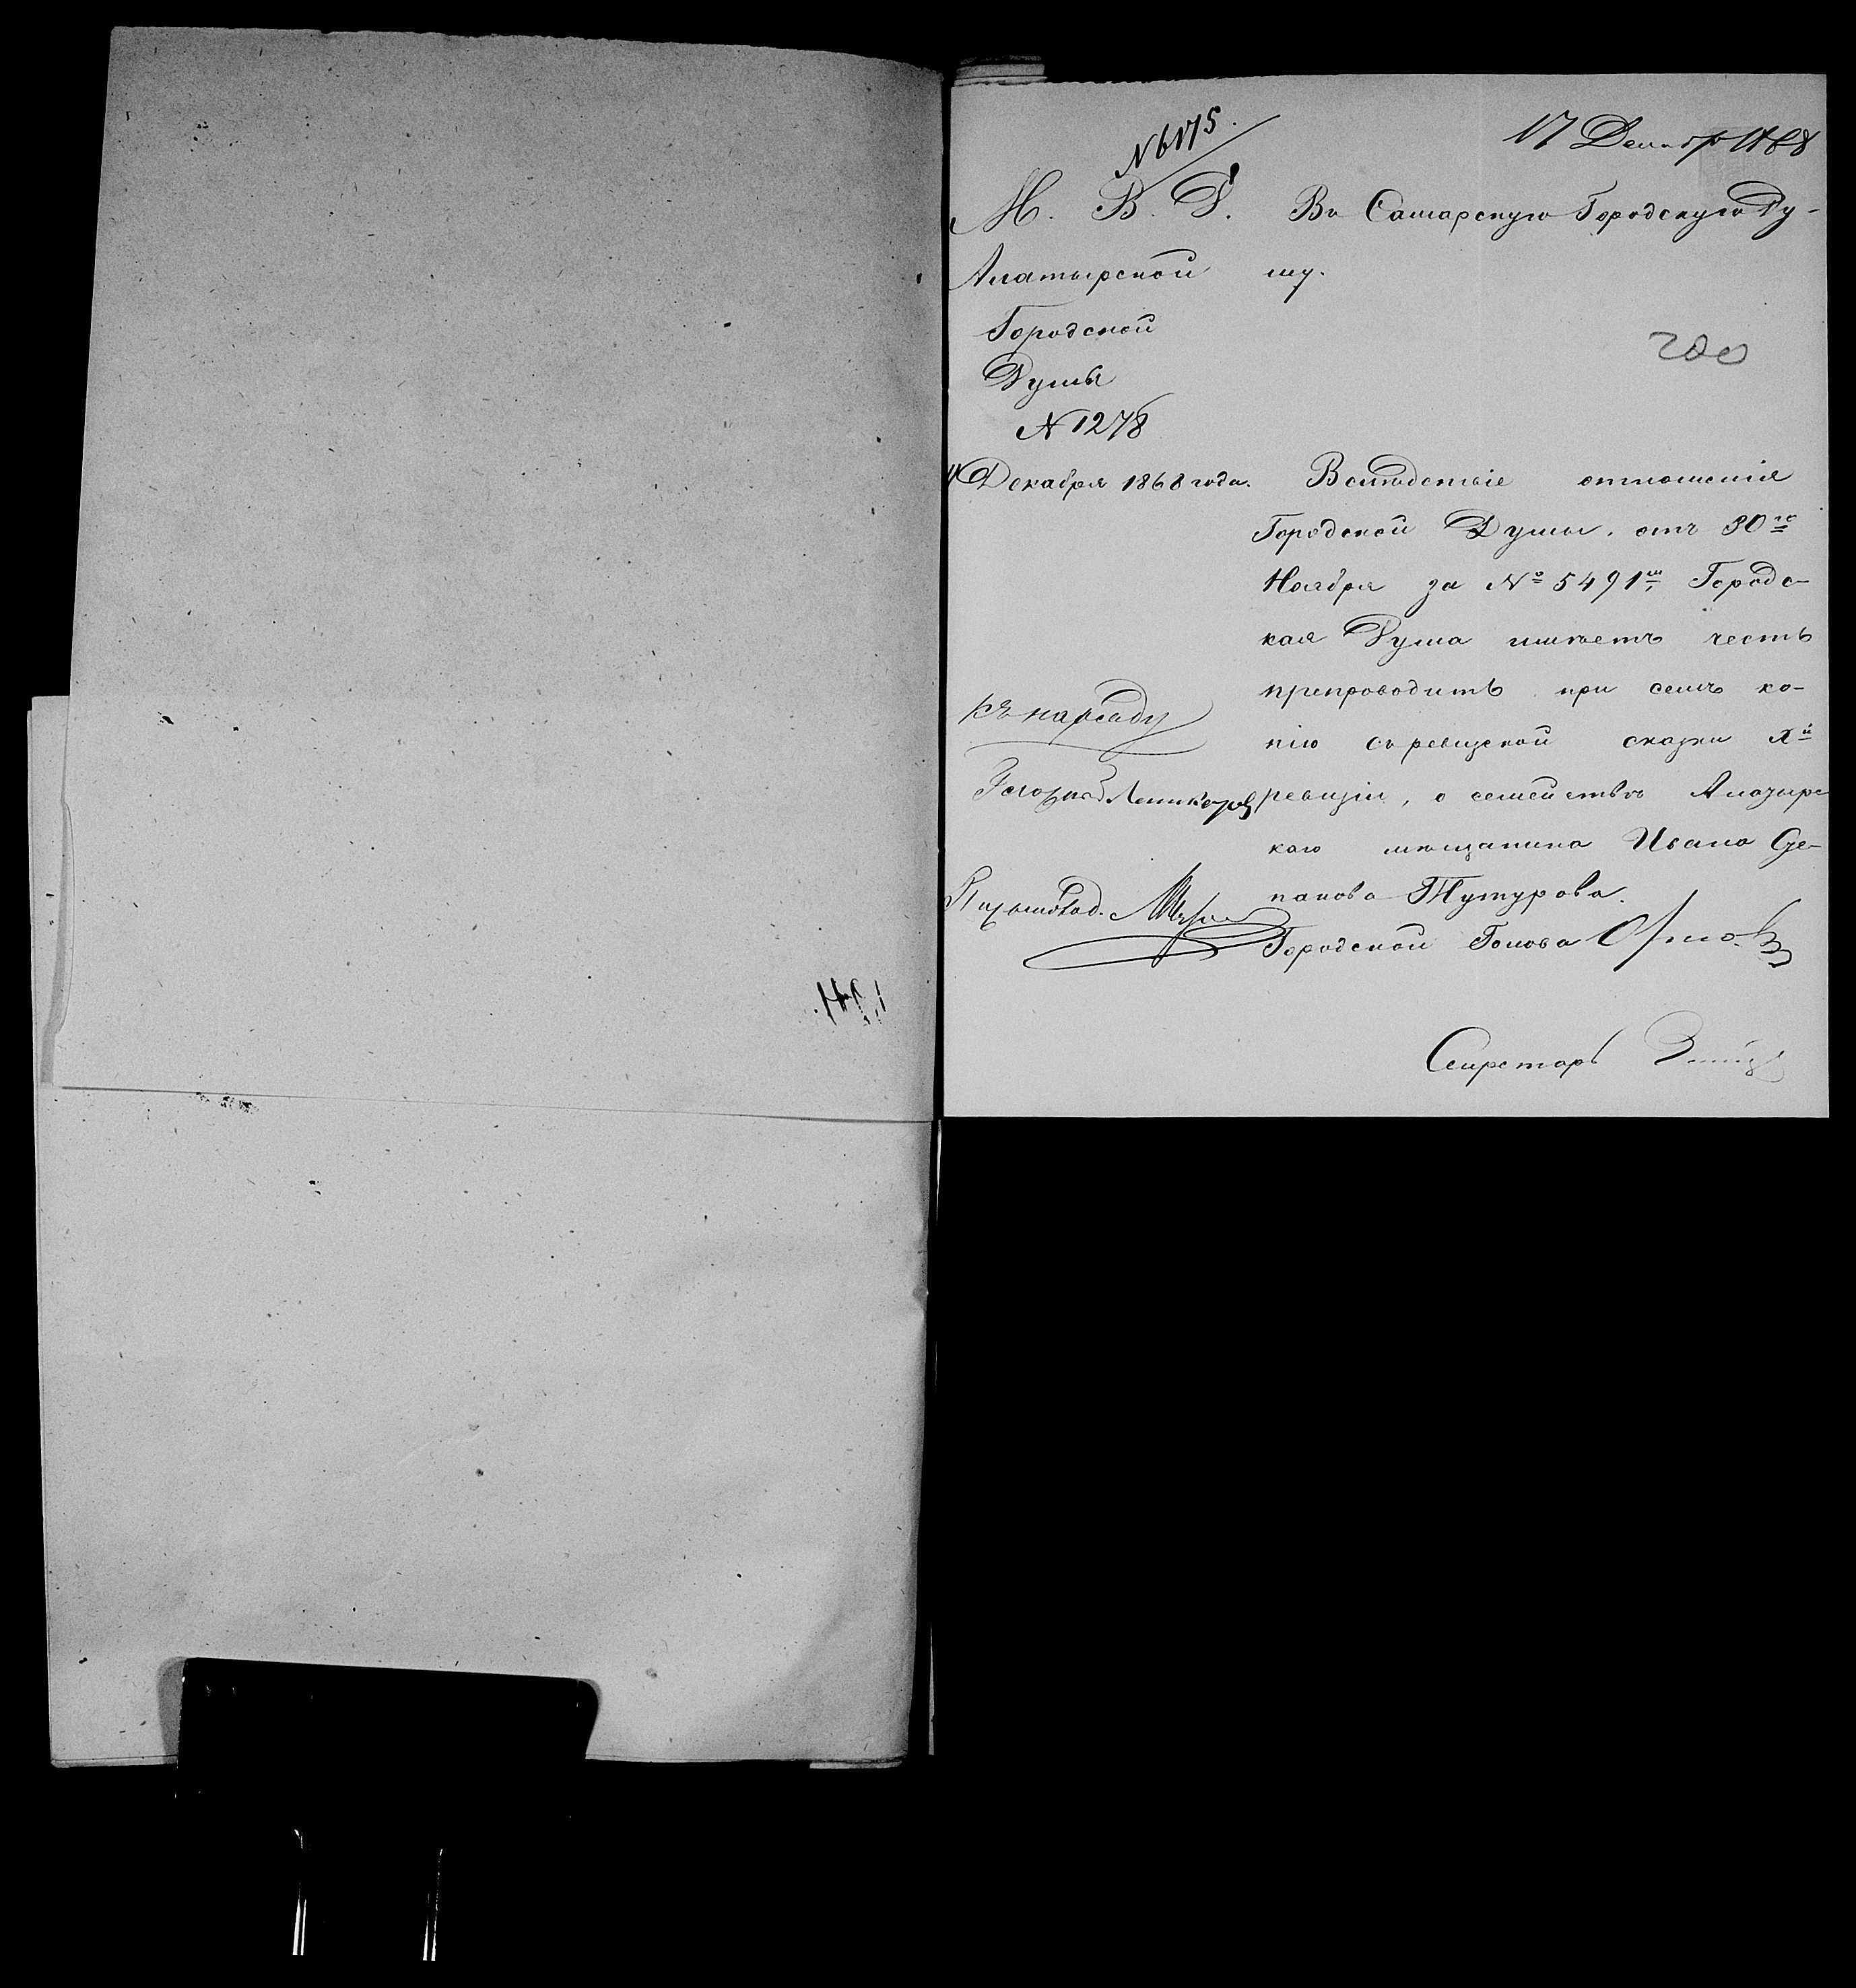 N 6175.
17 Декабр 1868
М. В. Д.
Алатырской
Городской
Думы
N 1278
Декабря 1868 года.
Въ Самарскую Городскую Ду-
му.
200
Вслѣдствіе отношенія
Городской Думы, отъ 30го
Ноября за № 5491м, Городс-
кая Дума имѣетъ честь
препроводить при семъ ко-
пію съ ревизской сказки Xй
ревизіи, о семействѣ Алатырс
каго мѣщанина Ивана Сте-
панова Тутурова.
Городской Голова
Секретарь
Къ наряду